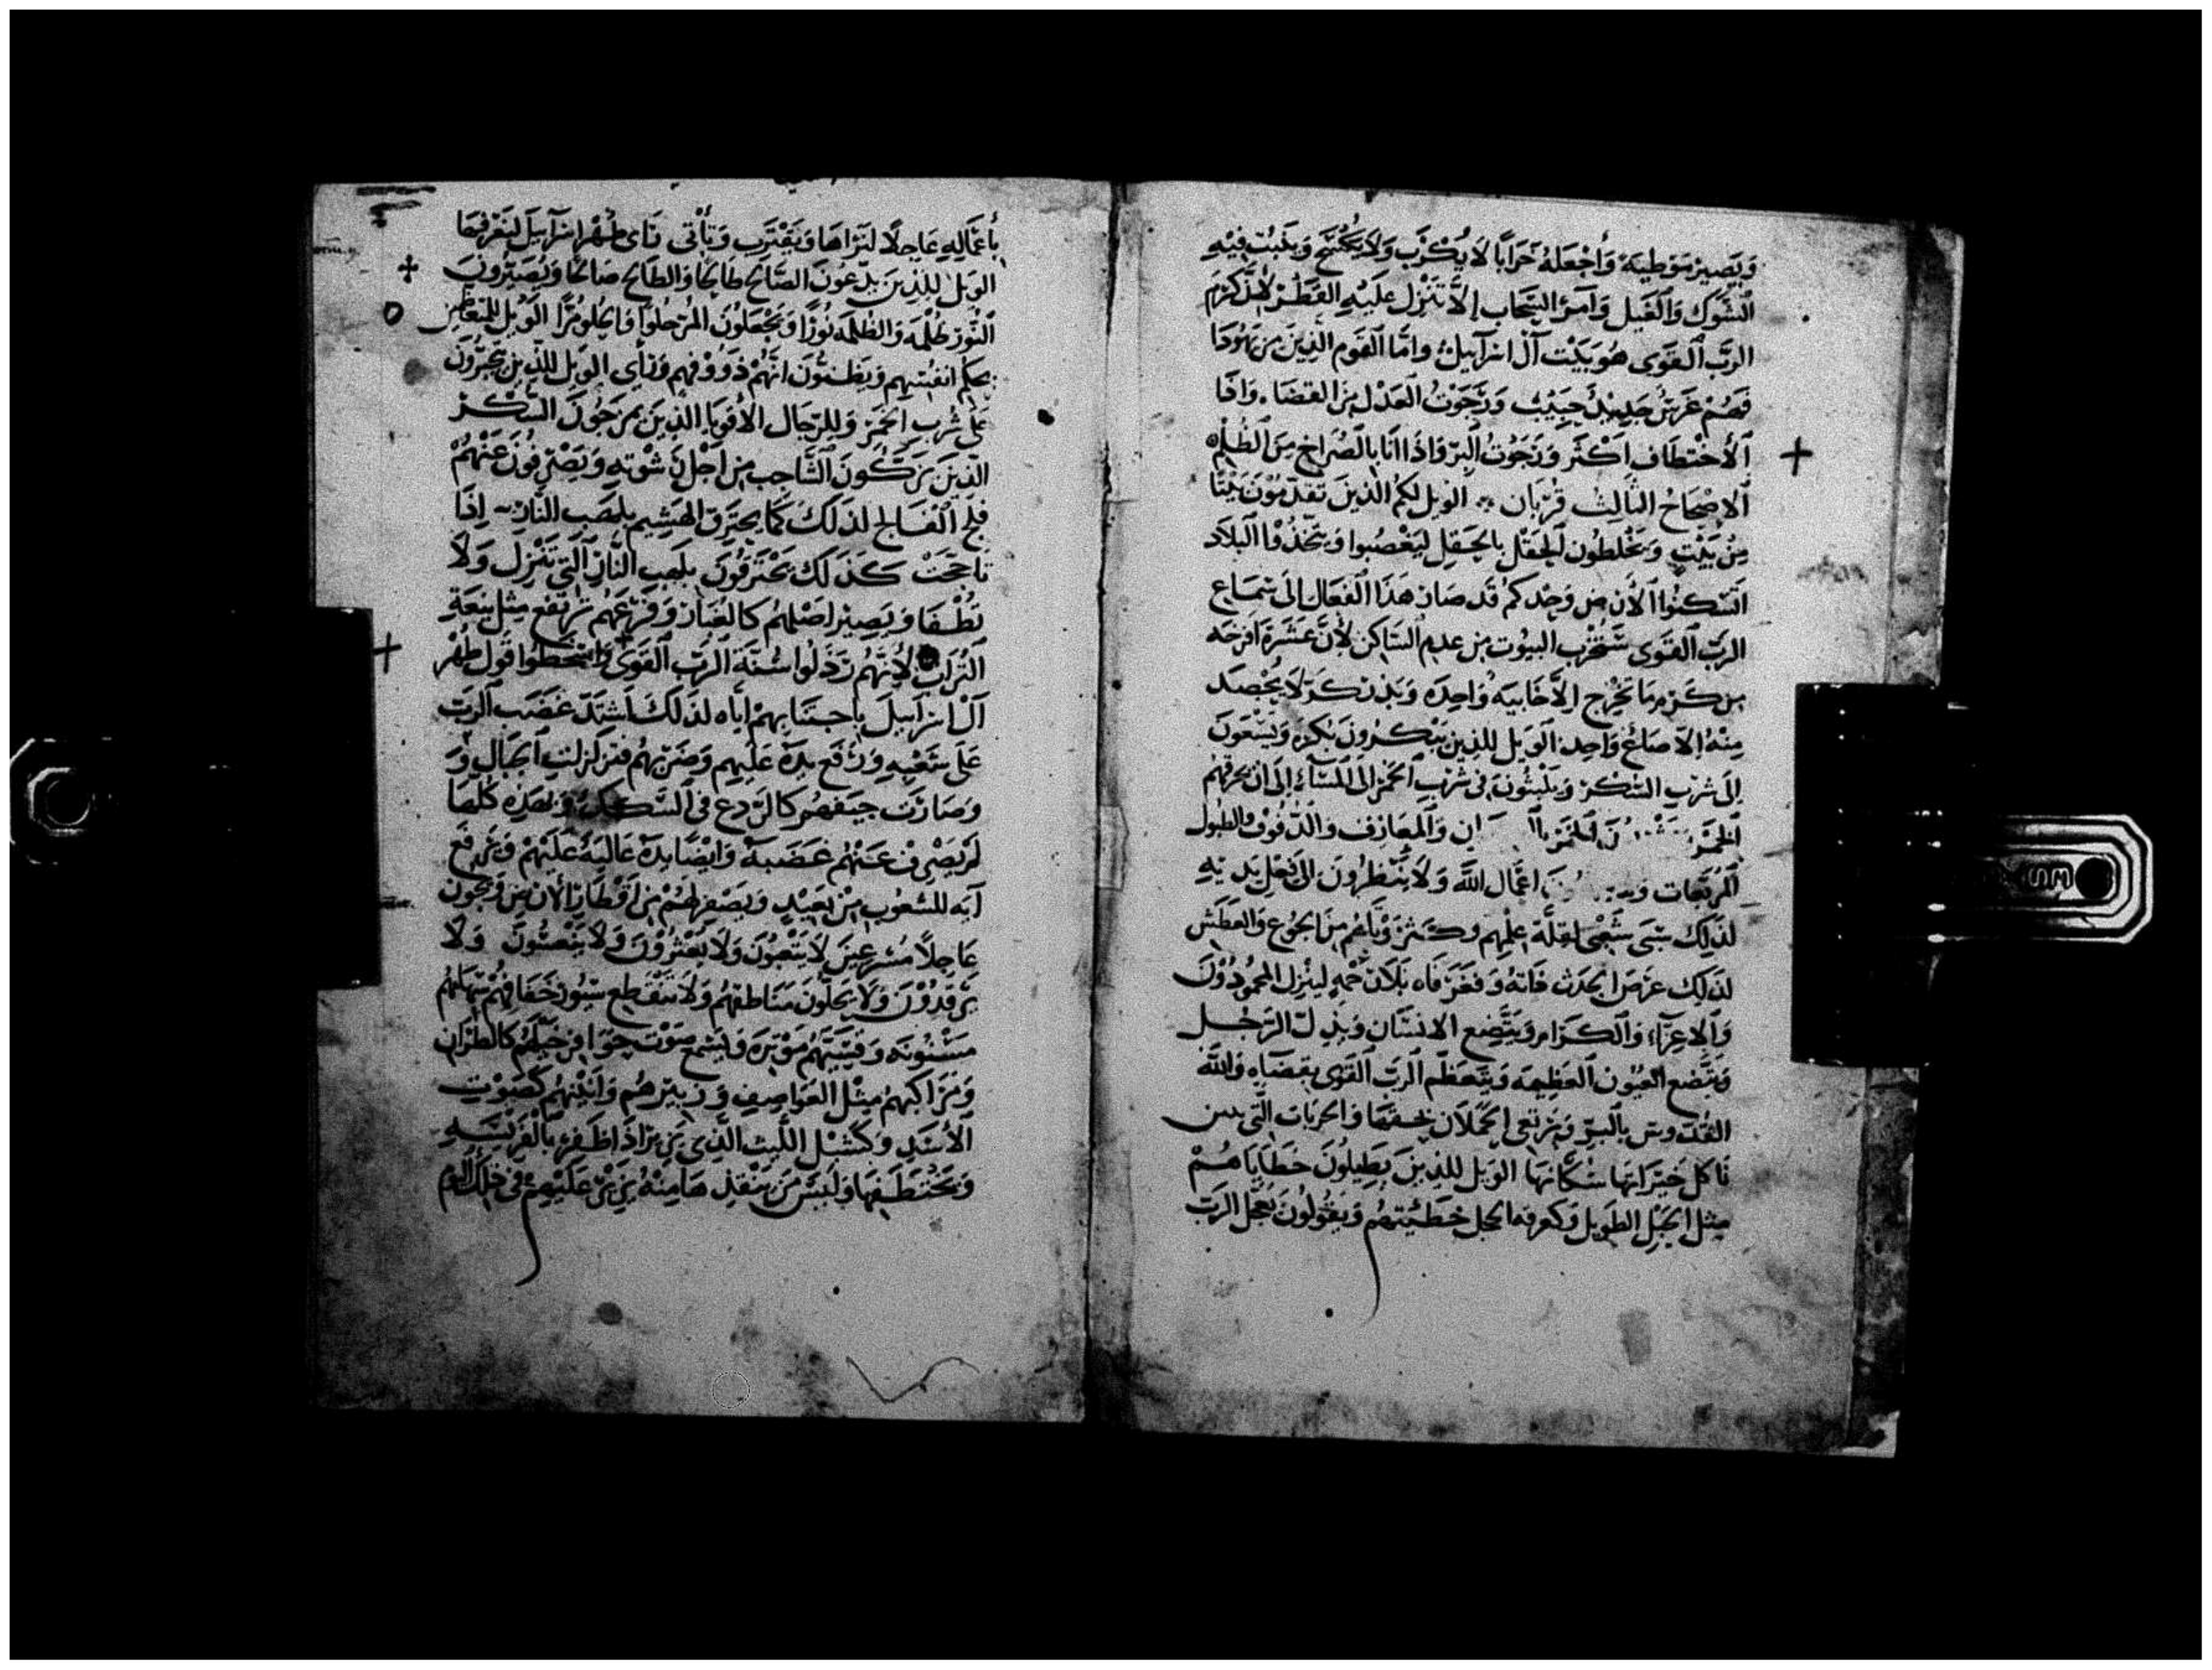 ويصير موطية واجعله خرابا لا يكرب ولا يكسح وينبت فيه
الشوك والغيل وآمر السحاب الا تنزل عليه القطر لان كرم
الرب القوى هو بيت آل اسراييل واما القوم الذين من يهودا
فهم غرس جديد حبيب ورجوت العدل من القضاء وافا
الاختطاف اكثر ورجوت البر واذا انا بالصراخ من الظلم
الاصحاح الثالث قربان الويل لكم الذين تقدمون بيتا
من بيت وتخلطون الحقل بالحقل ليغصبوا ويتخذوا البلاد
اتسكنوا الان من وحدكم قد صار هذا الفعال الى سماع
الرب القوى ستخرب البيوت من عدم الساكن لان عشرة افرحه
من كرم ما تخرج الا خابية واحده وبذر كر لا يحصد
منه الا صاع واحد الويل للذين يبكرون بكره ويسعون
الى شرب السكر ويلبثون فى شرب الخمر الى المساء الى ان يحرقهم
الخمر والمعازف والدفوف والطبول
المربعات اعمال الله ولا ينظرون الى فعل يديه
لذلك سبى شعبى لقلة علمهم وكثر وتاهم من الجوع والعطش
لذلك عرض الجدث فاته وفغر فاه بلا رحمه لينزل المحمودون
والاعزاء والكرام ويتضع الانسان ويذل الرجل
وتتضع العيون العظيمه ويتعظم الرب القوى بقضاه والله
القدوس بالبر وترتعى الحملان بحقها والخربات التى
تاكل خيراتها سكانها الويل للذين يطيلون خطاياهم
مثل الحبل الطويل وكعرقه العجل خطيئتهم ويقولون يعجل الرب
باعماله عاجلا لنراها ويقترب وياتى راى طهر اسراييل لنعرفها
الويل للذين يدعون الصالح طالحا والطالح صالحا ويصيرون
النور ظلمه والظلمه نورا ويجعلون المر حلوا والحلو مرا الويل للمتعاظمين
بحكم انفسهم ويظنون انهم ذوو فهم وراى الويل للذين يتجبرون
على شرب الخمر وللرجال الاقويا الذين يمزجون السكر
الذين يزكون الشاجب من اجل رشوته ويصرفون عنهم
فلج الفالج لذلك كما يحترق الهشيم بلهب النار اذا
تاججت كذلك يحترقون بلهب النار التى تنزل ولا
تطفا ويصير اصلهم كالغبار وفرعهم يرتفع مثل
التراب لانهم رذلوا سنة الرب القوى واسخطوا قول طهر
آل اسراييل باجتنابهم اياه لذلك اشتد غضب الرب
على شعبه ورفع يده عليهم وضربهم فتزلزلت الجبال و
وصارت جيفهم كالردع فى السكك وبهذه كلها
لم يصرف عنهم غضبه وايضا يده عالية عليهم ويرفع
آيه للشعوب من بعيد ويصفر لهم من اقطار الارض ويجون
عاجلا مسرعين لا يتعبون ولا يعثرون ولا ينعسون ولا
يرقدون ولا يحلون مناطقهم ولا تنقطع سيور خفافهم سهامهم
مسنونه وقسيهم موتره ويسمع صوت حوافر خيلهم كالطران
ومراكبهم مثل العواصف وزبيرهم وانينهم كصوت
الاسد وكشبل الليث الذى يزير اذا ظفر بالفريسه
ويختطفها وليس من ينقذها منه يزير عليهم فى ذلك اليوم